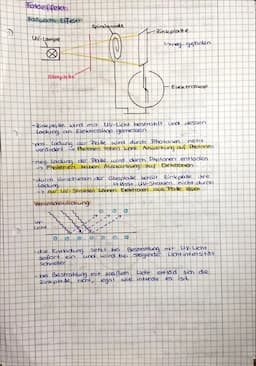 Fotoeffekt:
Hallwachs Effekt
Spiralanode
UV-Lampe
Zinkplatte
neg. geladen
Glasplatte
Elektroskop
- Zinkplatte wird mit UV-Licht bestrahlt und dessen
Ladung am Elektroskop gemessen
- pos. Ladung der Platte wird durch Photonen nicht
verändert → Photonen haben keine Auswirkung auf Protonen
- neg. Ladung der Platte wird durch Photonen entladen
→ Photonen haben Auswirkung auf Elektronen
- durch Vorschieben der Glasplatte behält Zinkplatte ihre
Ladung UV-Strahlen nicht durch
→ nur UV-Strahlen können Elektronen aus Platte lösen
Veranschaulichung:
UV-
Licht
- die Entladung setzt bei Bestrahlung mit UV-Licht
sofort ein und wird bei steigender Lichtintensität
schneller
- bei Bestrahlung mit weißem Licht entläd sich die
Zinkplatte nicht, egal wie intensiv es ist